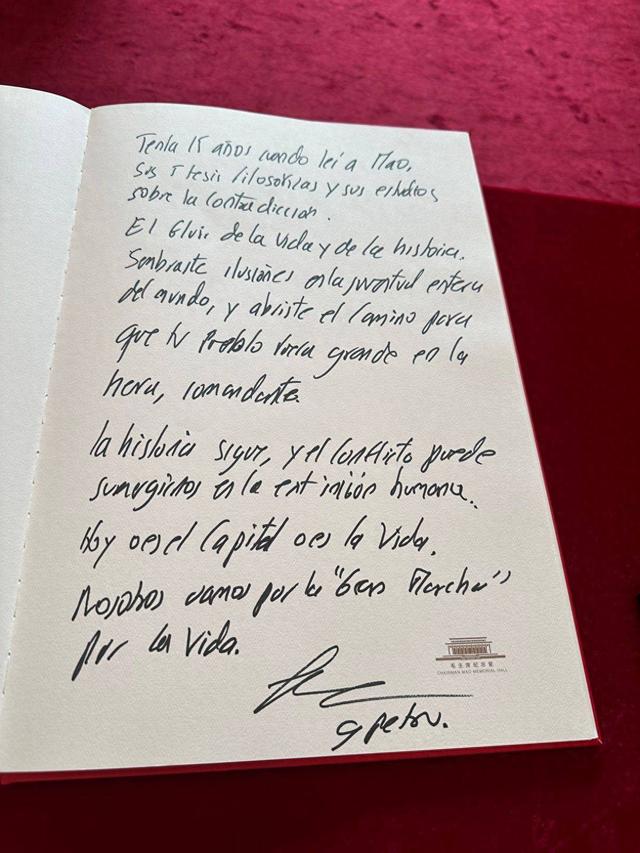 Tenía 15 años cuando leí a Mao,
Sus 5 tesis filosoficas y sus estudios
sobre la contradiccion.
El fluir de la vida y de la historia.
Sembraste ilusiónes en la juventud entera
del mundo, y abriste el camino para
que tu Pueblo fuera grande en la
tierra, comandante.
la historia sigue, y el conflicto puede
sumergirnos en la extinción humana.
Hoy o es el Capital o es la Vida.
Nosotros vamos por la "Gran Marcha"
por la Vida.
G Petro.
毛主席纪念堂
CHAIRMAN MAO MEMORIAL HALL